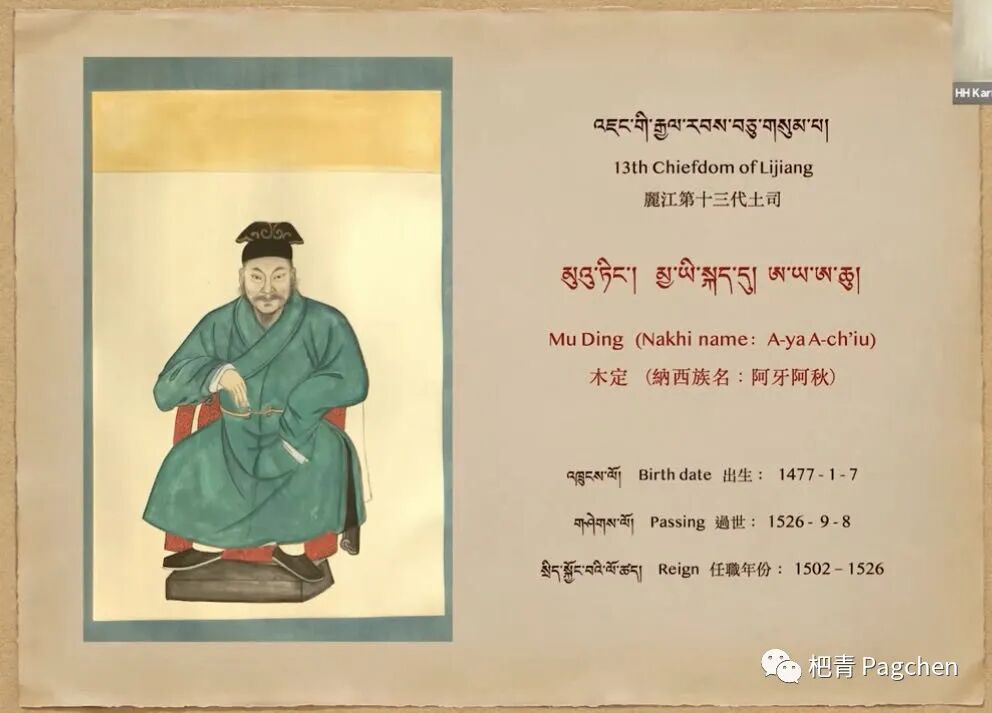 HH Kar
འཇང་གི་རྒྱལ་རབས་བཅུ་གསུམ་པ།
13th Chiefdom of Lijiang
麗江第十三代土司
མུའུ་ཏིང་། མྱ་ཡི་སྐད་དུ། ཨ་ཡ་ཨ་ཆུ།
Mu Ding (Nakhi name: A-ya A-ch'iu)
木定 (納西族名：阿牙阿秋)
འཁྲུངས་ལོ། Birth date 出生： 1477 - 1 - 7
གཤེགས་ལོ། Passing 過世： 1526 - 9 - 8
སྲིད་སྐྱོང་བའི་ལོ་ཚད། Reign 任職年份： 1502 – 1526
杷青 Pagchen